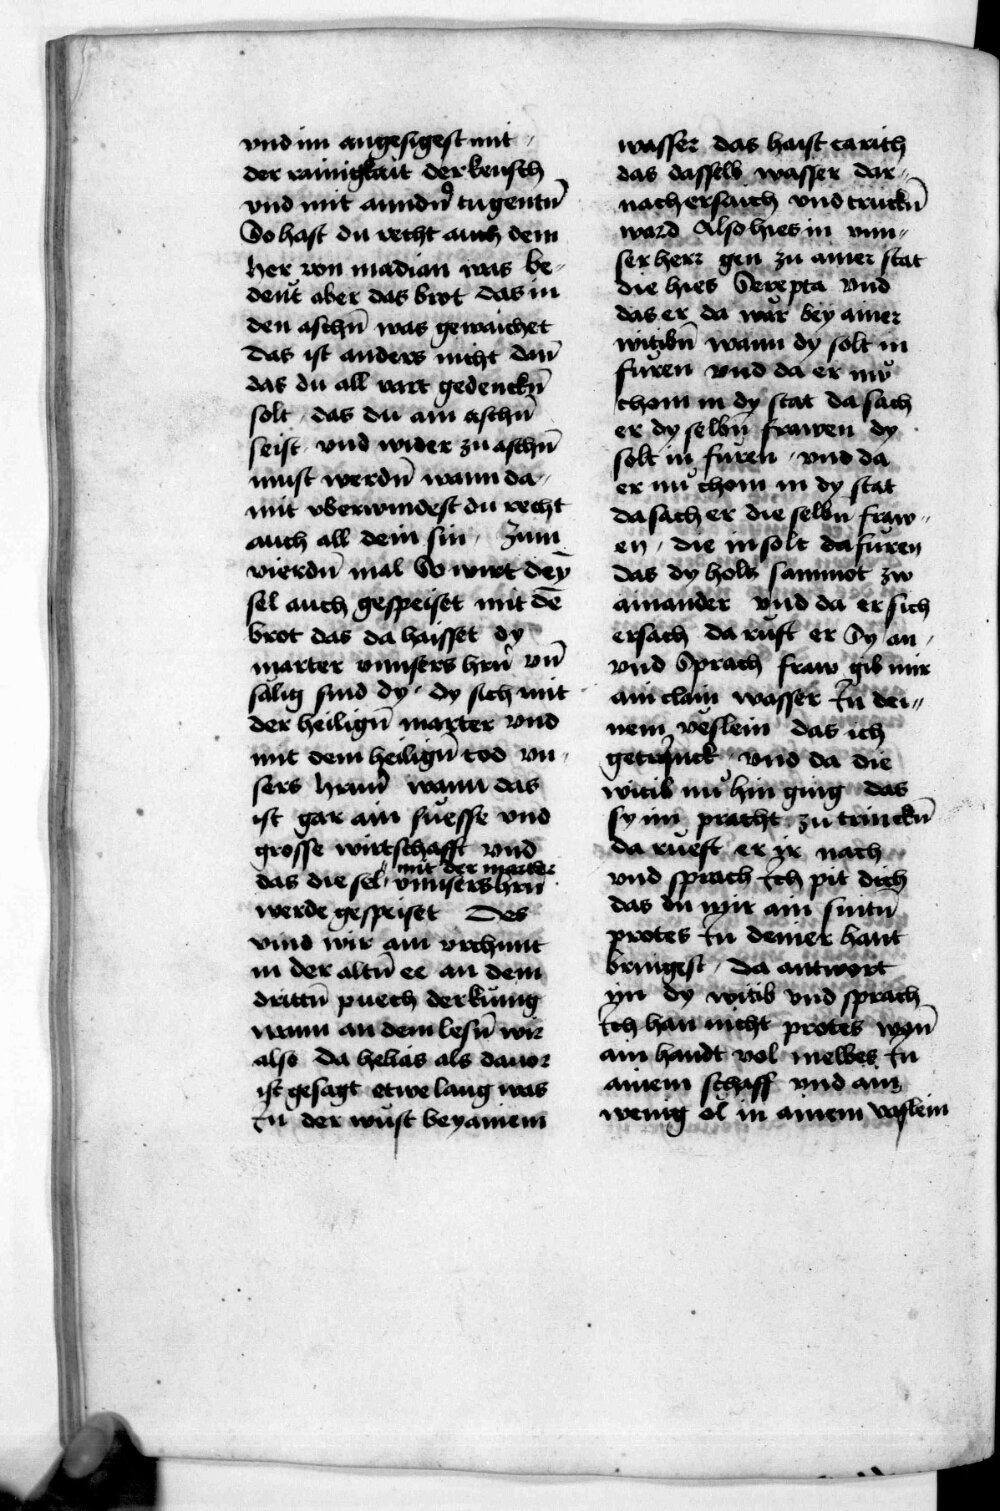 vnd im angesigest mit
der rainigkait der keusch
vnd mit anndn̄ tugentn̄
So hast du recht auch dem
her von madian was be-
deut aber das brot das in
den aschn̄ was gewaichet
Das ist anders nicht dan̄
das du all vart gedenckn̄
solt das du ain aschn̄
seist vnd wider zu aschn̄
must werdn̄ wann da-
mit vberwindest du recht
auch all dein sin Zum
vierdn̄ mal So wirt dey
sel auch gespeiset mit dē
brot das da haisset dy
marter vnnsers hrn̄ vn̄
sälig sind dy dy sich mit
der heilign̄ marter vnd
mit dem heilign̄ tod vn-
sers hrnn̄ wann das
ist gar ain suesse vnd
grosse wirtschafft vnd
das die sel mit der marter vnnsers hrn̄
werde gespeiset Des
vind wir ain vrchunt
in der altn̄ ee an dem
drittn̄ puech der kunig
wann an dem lesn̄ wir
also Da helias als dauor
ist gesagt etwe lang was
In der wüst bey ainem
wasser das haist carith
das dasselb wasser dar-
nach ersaich vnd truckn̄
ward Also hies in vnn-
ser herr gen zu ainer stat
die hies Serepta vnd
das er da wär bey ainer
witibn̄ wann dy solt in
füren vnd da er nu
chom in dy stat da sach
er dy selbn̄ frawen dy
solt in füren vnd da
er nu chom in dy stat
da sach er die selbn̄ fraw-
en die in solt da füren
das dy holtz sammet zw
ainander vnd da er sich
ersach da ruft er Sy an
vnd Sprach fraw gib mir
ain clain wasser In dei-
nem veslein das ich
getrinck vnd da die
witib nu hin ging das
sy im pracht zu trinckn̄
da rueft er ir nach
vnd sprach Ich pit dich
das du mir ain sintn̄
protes In deiner hant
bringest da antwort
yn dy witib vnd sprach
Ich han nicht protes wyn̄
ain handt vol melbes In
ainem schaff vnd ain
wenig öl in ainem vaslein